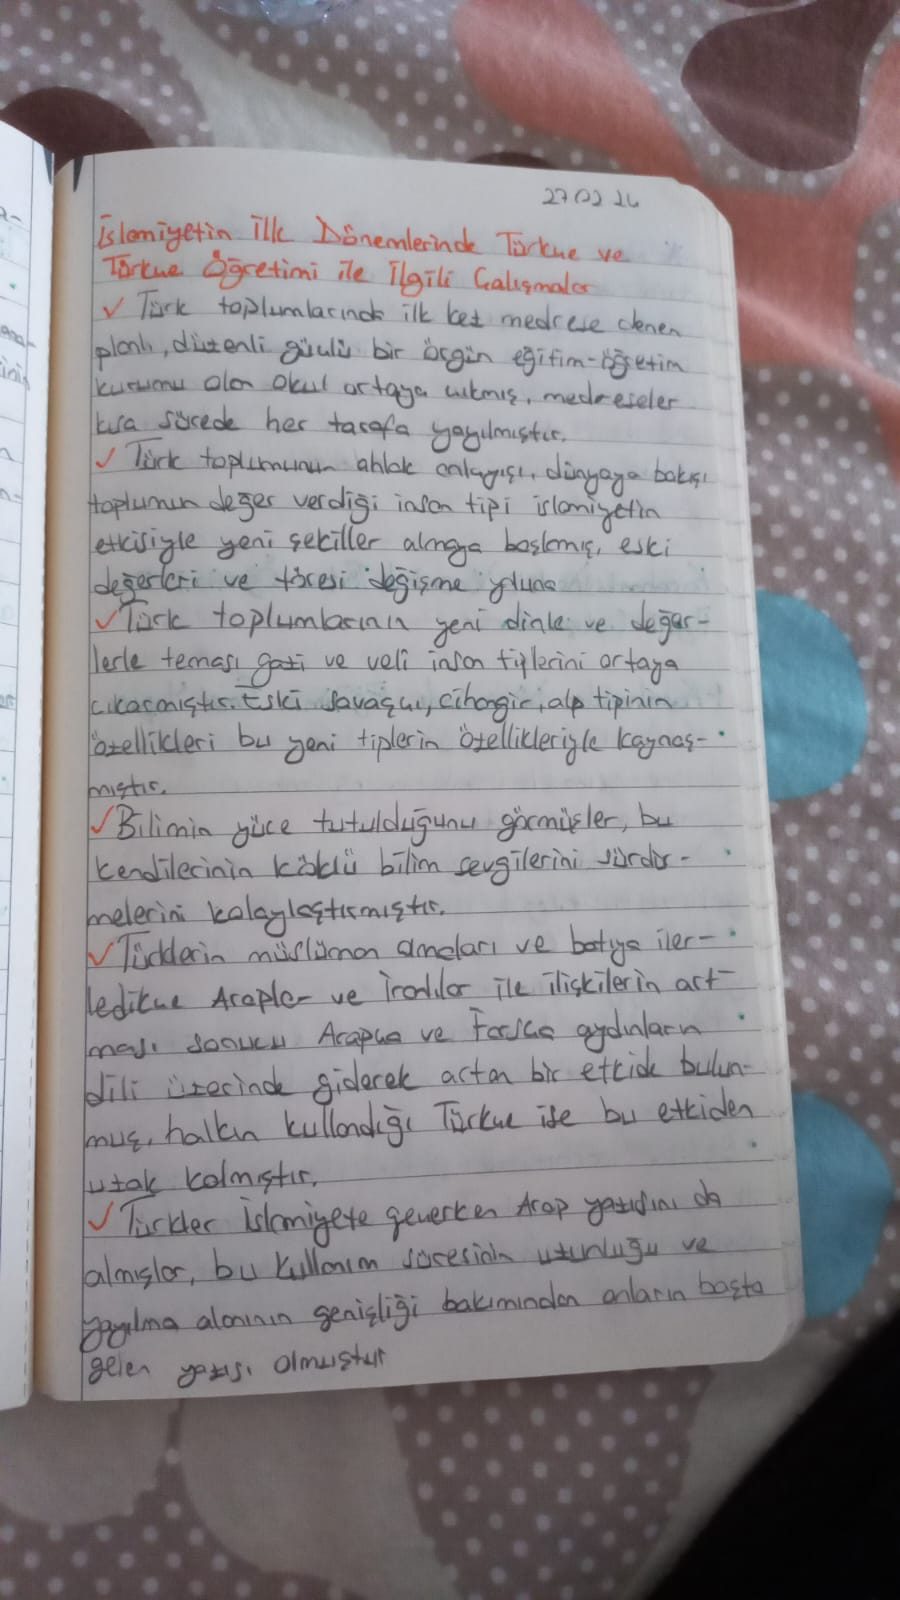 27 02 26
İslamiyetin İlk Dönemlerinde Türkçe ve
Türkçe Öğretimi ile İlgili Çalışmalar
✓ Türk toplumlarında ilk kez medrese denen
planlı, düzenli güçlü bir örgün eğitim-öğretim
kurumu olan okul ortaya çıkmış, medreseler
kısa sürede her tarafa yayılmıştır.
✓ Türk toplumunun ahlak anlayışı, dünyaya bakışı
toplumun değer verdiği insan tipi islamiyetin
etkisiyle yeni şekiller almaya başlamış, eski
değerleri ve töresi değişme yoluna
✓ Türk toplumlarının yeni dinle ve değer-
lerle teması gazi ve veli insan tiplerini ortaya
çıkarmıştır. Eski savaşçı, cihangir, alp tipinin
özellikleri bu yeni tiplerin özellikleriyle kaynaş-
mıştır.
✓ Bilimin yüce tutulduğunu görmüşler, bu
kendilerinin köklü bilim sevgilerini sürdür-
melerini kolaylaştırmıştır.
✓ Türklerin müslüman olmaları ve batıya iler-
ledikçe Araplar ve İranlılar ile ilişkilerin art-
ması sonucu Arapça ve Farsça aydınların
dili üzerinde giderek artan bir etkide bulun-
muş, halkın kullandığı Türkçe ise bu etkiden
uzak kalmıştır.
✓ Türkler İslamiyete geçerken Arap yazısını da
almışlar, bu kullanım süresinin uzunluğu ve
yayılma alanının genişliği bakımından onların başta
gelen yazısı olmuştur